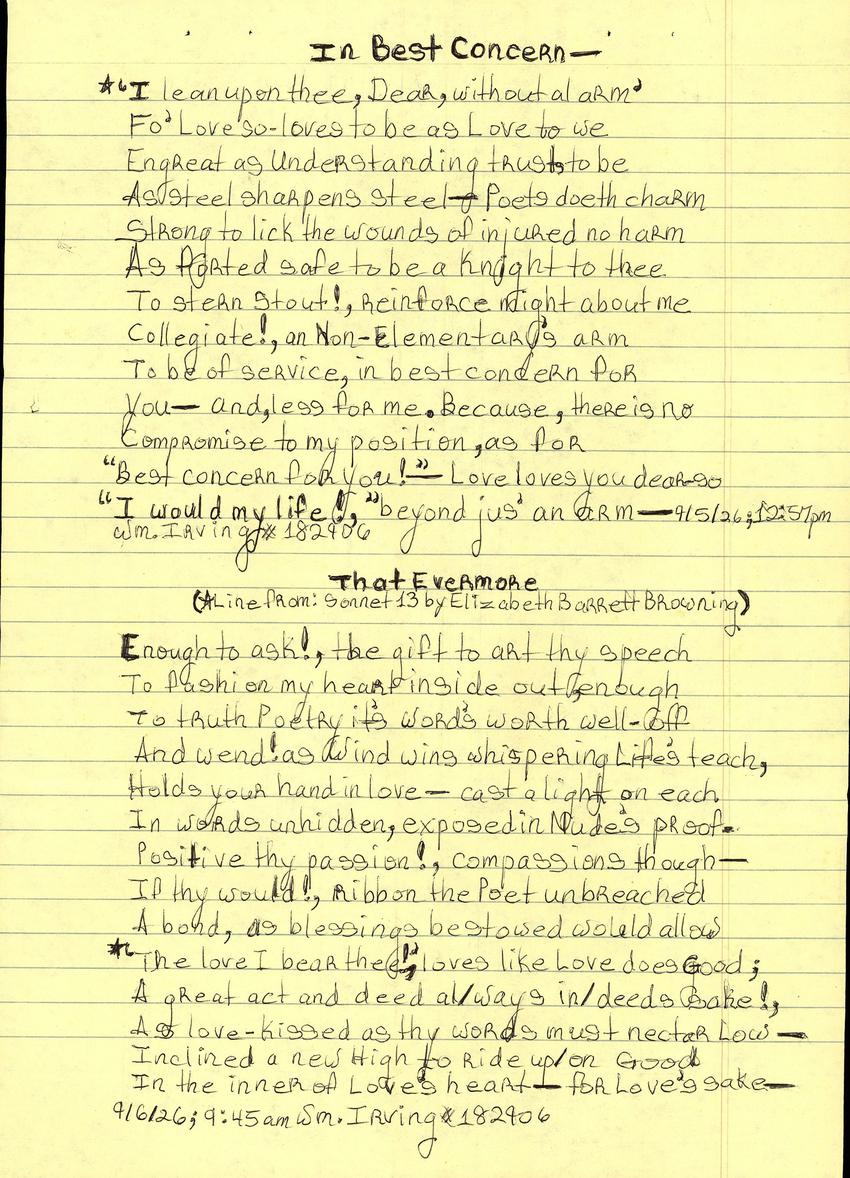 In Best Concern—
*"I lean upon thee, Dear, without alarm'
Fo' Love so-loves to be as Love to we
Engreat as Understanding trusts to be
As steel sharpens steel— Poets doeth charm
Strong to lick the wounds of injured no harm
As forted safe to be a Knight to thee
To stern Stout!, reinforce might about me
Collegiate!, an Non-Elementary's arm
To be of service, in best concern for
You— and, less for me. Because, there is no
Compromise to my position, as for
"Best concern for you!"— Love loves you dear-so
"I would my life!," beyond jus' an arm— 9/5/26; 12:57pm
Wm. Irving # 182906
That Evermore
(*Line from: Sonnet 13 by Elizabeth Barrett Browning)
Enough to ask!, the gift to art thy speech
To fashion my heart inside out, enough
To truth Poetry it's Word's worth well-off
And wend! as Wind wins whispering Life's teach,
Holds your hand in love— cast a light on each
In words unhidden, exposed in Nude's proof.
Positive thy passion!, compassions though—
If thy would!, ribbon the Poet unbreached
A bond, as blessings bestowed would allow
*"The love I bear thee!," loves like Love does Good;
A great act and deed al/ways in/deeds Sake!,
As love-kissed as thy words must nectar Low—
Inclined a new High to ride up/on Good
In the inner of Love's heart— for Love's sake—
9/6/26; 9:45am Wm. Irving # 182906